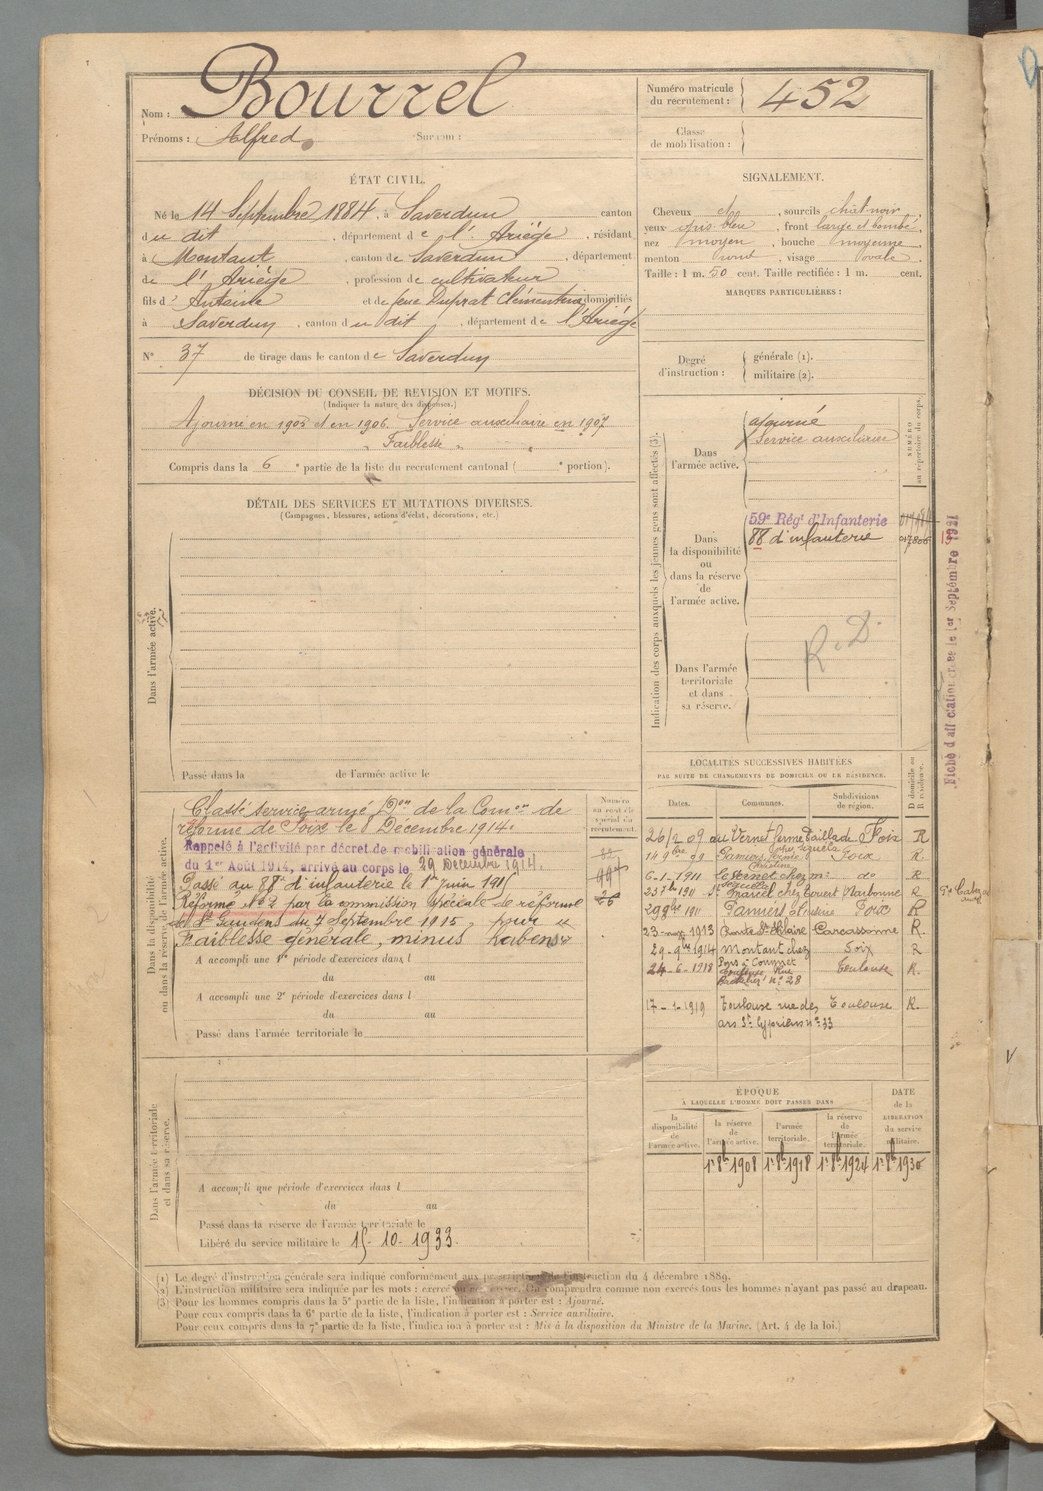 Nom : Bourrel
Prénoms : Alfred Surnom :
Numéro matricule du recrutement : 452
Classe de mobilisation :
ÉTAT CIVIL.
Né le 14 Septembre 1884, à Saverdun canton
du dit, département de l'Ariège, résidant
à Montaut, canton de Saverdun, département
de l'Ariège, profession de cultivateur
fils d' Antoine et de feue Duprat Clémentine domiciliés
à Saverdun, canton du dit, département de l'Ariège
N° 37 de tirage dans le canton de Saverdun
SIGNALEMENT.
Cheveux et, sourcils chat-noir,
yeux gris-bleu, front large et bombé,
nez moyen, bouche moyenne,
menton rond, visage ovale.
Taille : 1 m. 50 cent. Taille rectifiée : 1 m. cent.
MARQUES PARTICULIÈRES :
Degré d'instruction : générale (1).
militaire (2).
DÉCISION DU CONSEIL DE REVISION ET MOTIFS.
(Indiquer la nature des dispenses.)
Ajourné en 1905 et en 1906. Service auxiliaire en 1907
Faiblesse
Compris dans la 6e partie de la liste du recrutement cantonal ( e portion).
DÉTAIL DES SERVICES ET MUTATIONS DIVERSES.
(Campagnes, blessures, actions d'éclat, décorations, etc.)
Dans l'armée active.
Passé dans la de l'armée active le
Indication des corps auxquels les jeunes gens sont affectés (3).
NUMÉRO au répertoire du corps.
Dans l'armée active.
ajourné
Service auxiliaire
Dans la disponibilité ou dans la réserve de l'armée active.
59e Régt d'Infanterie
88 d'infanterie
Dans l'armée territoriale et dans sa réserve.
R. D.
Fiche d'affectation créée le 1er Septembre 1921
Dans la disponibilité ou dans la réserve de l'armée active.
Numéro au contrôle spécial du recrutement.
Classé service armé Don de la Comon de
réforme de Foix le 8 Décembre 1914.
Rappelé à l'activité par décret de mobilisation générale
du 1er Août 1914, arrivé au corps le 29 Décembre 1914.
Passé au 88e d'infanterie le 1er juin 1915
Réformé N° 2 par la commission spéciale de réforme
de St Gaudens du 7 Septembre 1915, pour «
Faiblesse générale, minus habens »
A accompli une 1re période d'exercices dans l
du au
A accompli une 2e période d'exercices dans l
du au
Passé dans l'armée territoriale le
LOCALITÉS SUCCESSIVES HABITÉES
PAR SUITE DE CHANGEMENTS DE DOMICILE OU DE RÉSIDENCE.
Dates. Communes. Subdivisions de région. D domicile ou R résidence.
26/2 09 au Vernet ferme Paillade Foix R
14 9bre 09 Pamiers Foix R
6-1-1911 Le Vernet chez Mr do R
St Marcel chez Narbonne R
1911 Pamiers Foix R
23 1913 Route St Hilaire Carcassonne R.
29-9bre 1914 Montaut chez Foix R
24-6-1918 Toulouse Rue n° 28 Toulouse R.
17-1-1919 Toulouse rue des Toulouse R.
arcs St Cyprien n° 33
Dans l'armée territoriale et dans sa réserve.
A accompli une période d'exercices dans l
du au
Passé dans la réserve de l'armée territoriale le
Libéré du service militaire le 15-10-1933.
ÉPOQUE
À LAQUELLE L'HOMME DOIT PASSER DANS
la disponibilité de l'armée active.
la réserve de l'armée active.
l'armée territoriale.
la réserve de l'armée territoriale.
DATE de la LIBÉRATION du service militaire.
1er 8bre 1908 1er 8bre 1918 1er 8bre 1924 1er 8bre 1930
(1) Le degré d'instruction générale sera indiqué conformément aux prescriptions de l'instruction du 4 décembre 1889.
(2) L'instruction militaire sera indiquée par les mots : exercé ou non exercé. On comprendra comme non exercés tous les hommes n'ayant pas passé au drapeau.
(3) Pour les hommes compris dans la 5e partie de la liste, l'indication à porter est : Ajourné.
Pour ceux compris dans la 6e partie de la liste, l'indication à porter est : Service auxiliaire.
Pour ceux compris dans la 7e partie de la liste, l'indication à porter est : Mis à la disposition du Ministre de la Marine. (Art. 4 de la loi.)